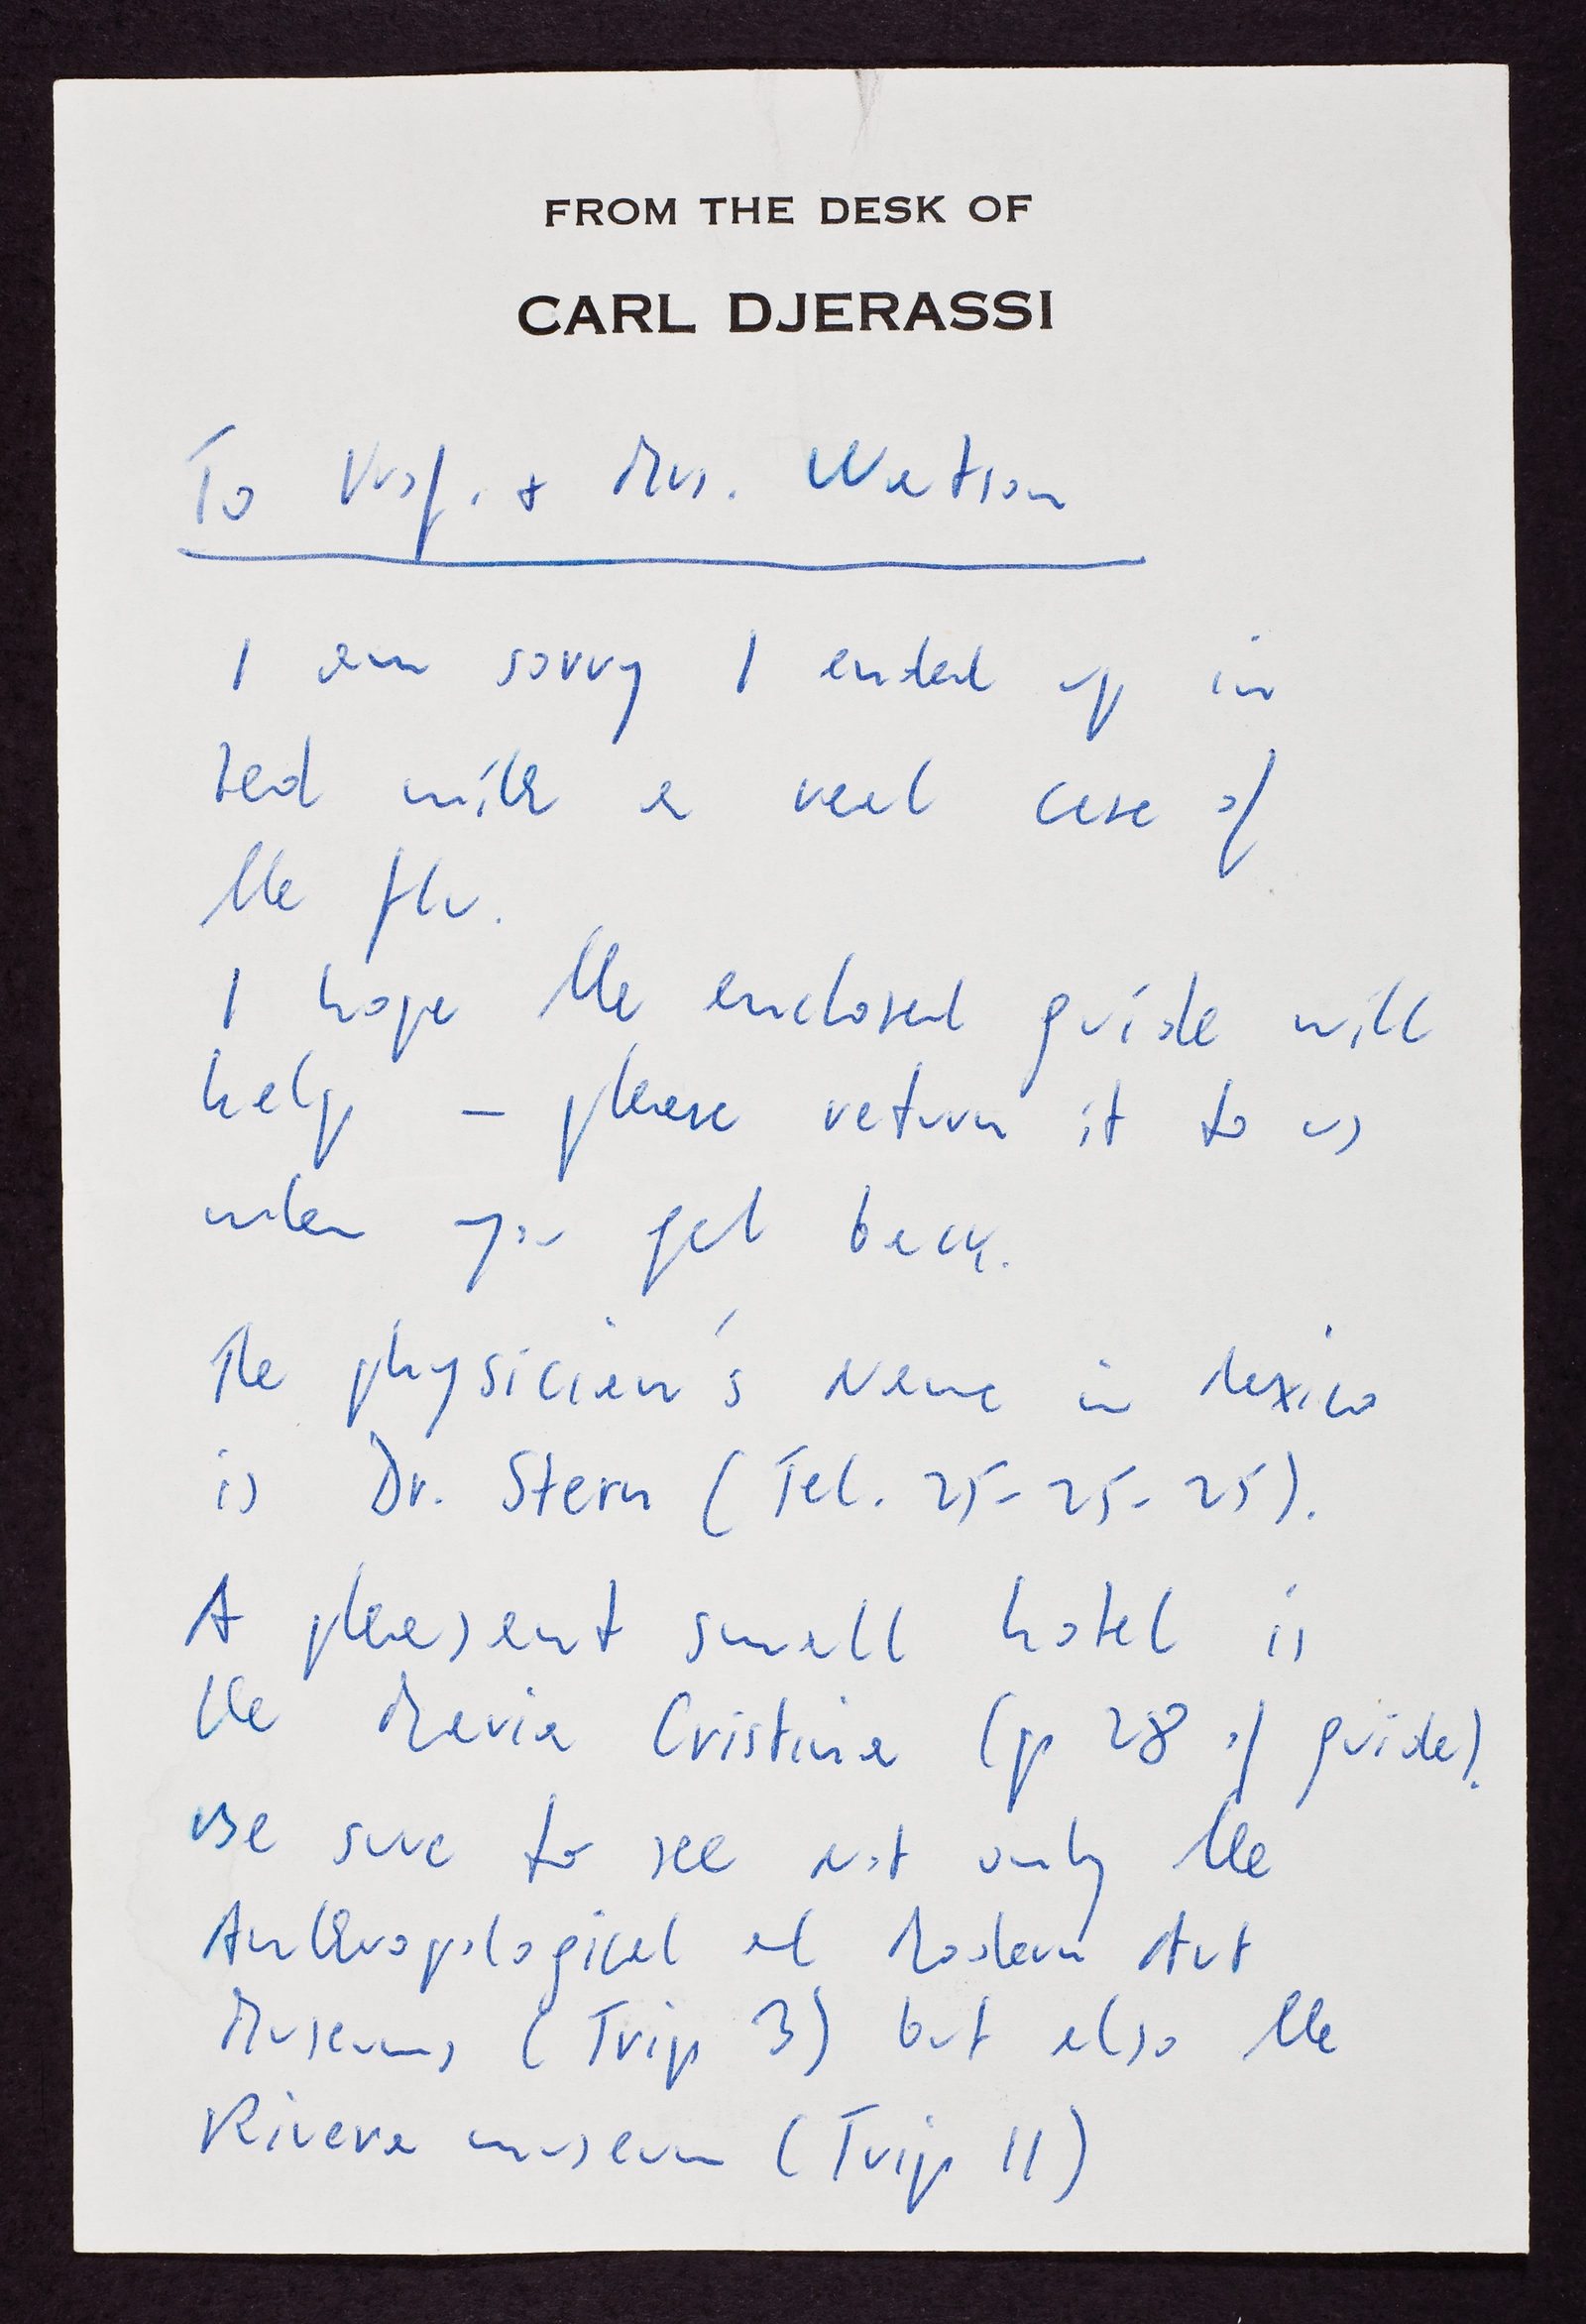 FROM THE DESK OF
CARL DJERASSI
To Prof. + Mrs. Watson
I am sorry I ended up in
bed with a real case of
the flu.
I hope the enclosed guide will
help – please return it to us
when you get back.
The physician's name in Mexico
is Dr. Stern (Tel. 25-25-25).
A pleasant small hotel is
the Maria Cristina (p 28 of guide).
Be sure to see not only the
Anthropological ad Modern Art
Museums (Trip 3) but also the
Rivera museum (Trip 11)